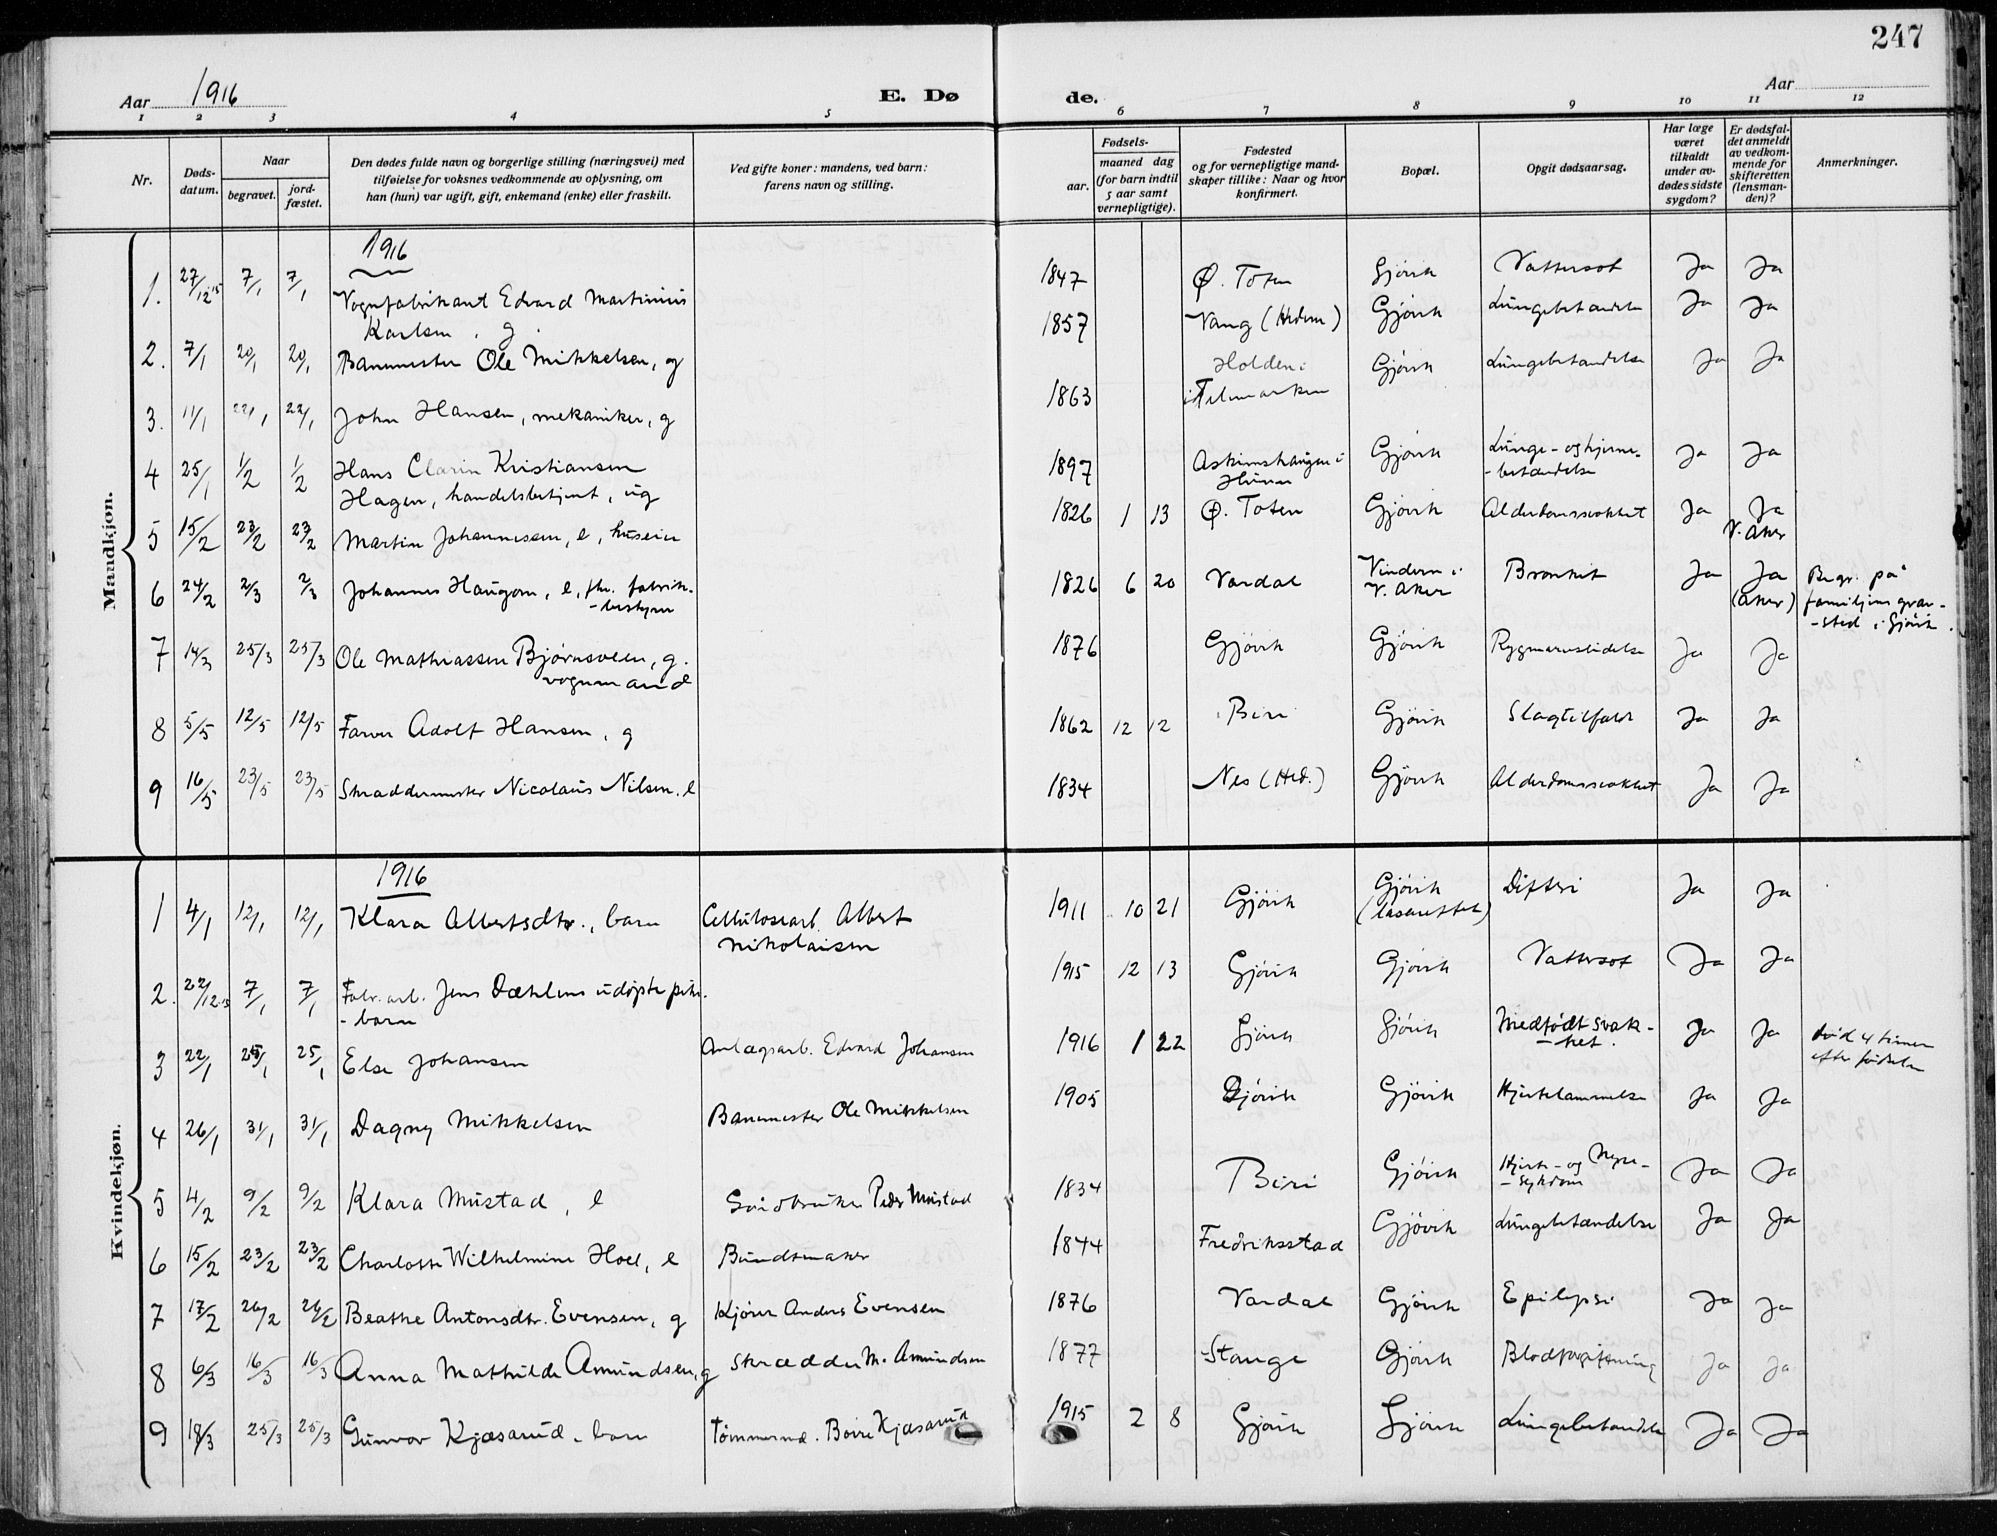 247
Aar 1916
E. Dø
de.
Aar
1 2 3 4 5 6 7 8 9 10 11 12
Nr.
Døds-
datum.
Naar
begravet.
jord-
fæstet.
Den dødes fulde navn og borgerlige stilling (næringsvei) med
tilføielse for voksnes vedkommende av oplysning, om
han (hun) var ugift, gift, enkemand (enke) eller fraskilt.
Ved gifte koner: mandens, ved barn:
farens navn og stilling.
Fødsels-
aar.
maaned dag
(for barn indtil
5 aar samt
vernepligtige).
Fødested
og for vernepligtige mand-
skaper tillike: Naar og hvor
konfirmert.
Bopæl.
Opgit dødsaarsag.
Har læge
været
tilkaldt
under av-
dødes sidste
sygdom?
Er dødsfal-
det anmeldt
av vedkom-
mende for
skifteretten
(lensman-
den)?
Anmerkninger.
Mandkjøn.
1916
1. 27/12 15 7/1 7/1 Vognfabrikant Edvard Martinius
Karlsen, g. 1847 Ø. Toten Gjövik Vattersot Ja Ja
2. 7/1 20/1 20/1 Banemester Ole Mikkelsen, g 1857 Vang (Hedem) Gjövik Lungebetændelse Ja Ja
3. 11/1 22/1 22/1 John Hansen, mekaniker, g 1863 Holden i
Telemarken Gjövik Lungebetændelse Ja Ja
4 25/1 1/2 1/2 Hans Clarin Kristiansen
Hagen, handelsbetjent, ug 1897 i
Hunn Gjövik Lunge- og hjerne-
-betændelse Ja Ja
5 15/2 23/2 23/2 Martin Johannessen, e, huseier 1826 1 13 Ø. Toten Gjövik Alderdomssvakhet Ja Ja
V. Aker
6 24/2 2/3 2/3 Johannes Haugom, e, fhv. fabrik-
-bestyrer 1826 6 20 Vardal Vindern i
V. Aker Bronkit Ja Ja
(Aker) Begr. på
familjens grav-
-sted i Gjövik.
7 14/3 25/3 25/3 Ole Mathiassen Bjørnsveen, g.
vognmand 1876 Gjövik Gjövik Rygmarvslidelse Ja Ja
8 5/5 12/5 12/5 Farver Adolf Hansen, g 1862 12 12 Biri Gjövik Slagtilfald Ja Ja
9 16/5 23/5 23/5 Skræddermester Nicolaus Nilsen, e 1834 Nes (Hed.) Gjövik Alderdomssvakhet Ja Ja
Kvindekjøn.
1916
1 4/1 12/1 12/1 Klara Albertsdtr., barn Cellulosearb. Albert
Nikolaisen 1911 10 21 Gjövik Gjövik
(lasarettet) Difteri Ja Ja
2. 22/12.15 7/1 7/1 Fabr. arb. Jens Dæhlens udøpte pike-
-barn 1915 12 13 Gjövik Gjövik Vattersot Ja Ja
3 22/1 25/1 25/1 Else Johansen Anlægsarb. Edvard Johansen 1916 1 22 Gjövik Gjövik Medfödt svak-
-het. Ja Ja död 4 timer
efter födselen
4 26/1 31/1 31/1 Dagny Mikkelsen Banemester Ole Mikkelsen 1905 Gjövik Gjövik Hjertelammelse Ja Ja
5 4/2 9/2 9/2 Klara Mustad, e Gårdbruker Peder Mustad 1834 Biri Gjövik Hjerte- og Nyre-
-sykdom Ja Ja
6 15/2 23/2 23/2 Charlotte Wilhelmine Hoel, e Bundtmaker 1844 Fredriksstad Gjövik Lungebetændelse Ja Ja
7 17/2 24/2 24/2 Beathe Antonsdtr. Evensen, g Kjörer Anders Evensen 1876 Vardal Gjövik Epilepsi Ja Ja
8 6/3 16/3 16/3 Anna Mathilde Amundsen, g Skrædder M. Amundsen 1877 Stange Gjövik Blodforgiftning Ja Ja
9 18/3 25/3 25/3 Gunvor Kjæsarud, barn Tömmermd. Kjæsarud 1915 2 8 Gjövik Gjövik Lungebetændelse Ja Ja